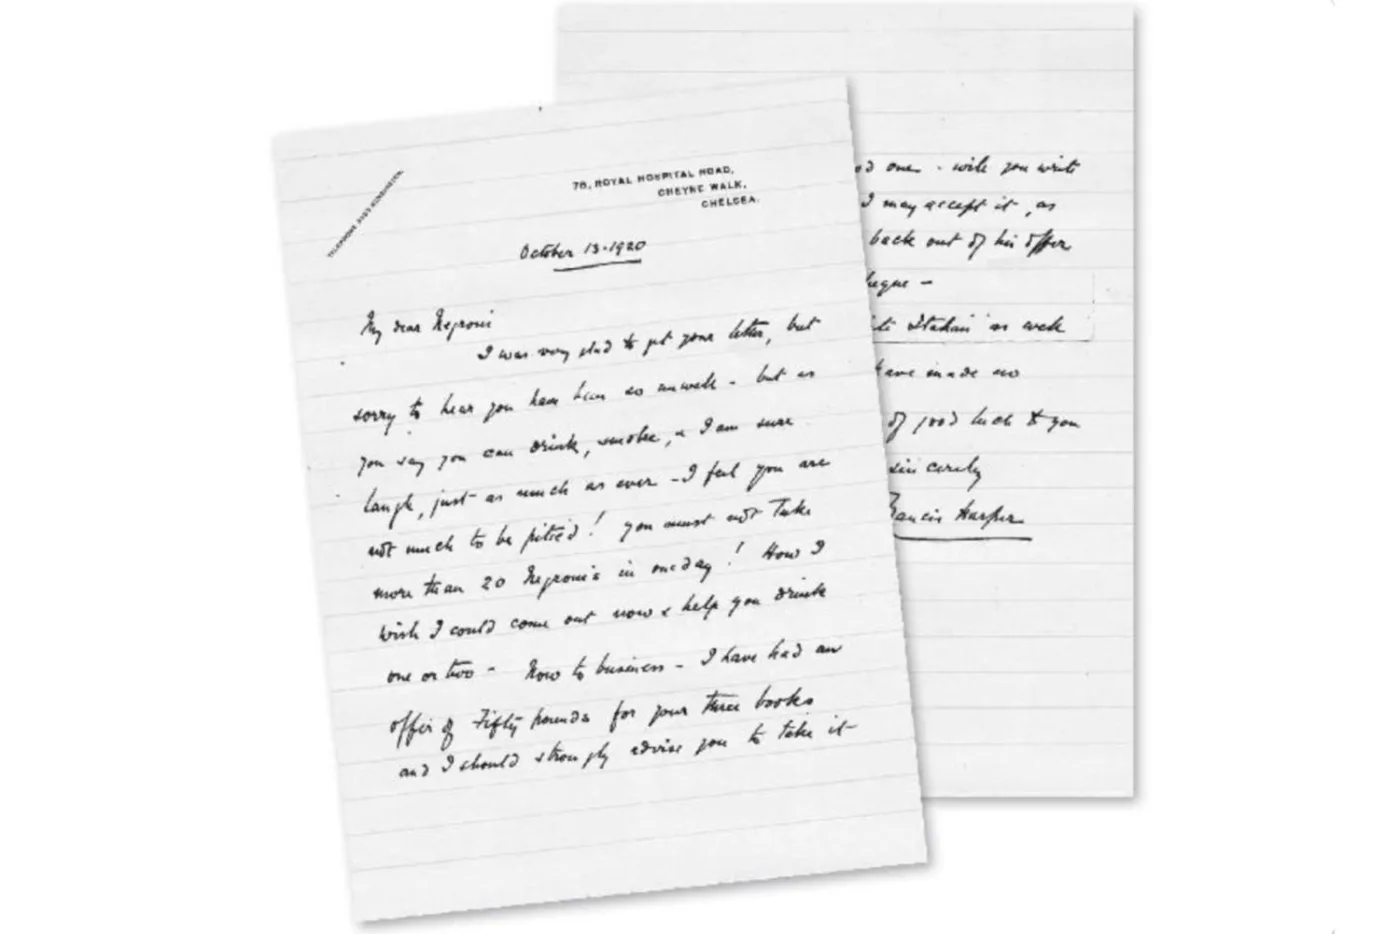 78, ROYAL HOSPITAL ROAD,
CHEYNE WALK,
CHELSEA.
October 13·1920
My dear Negroni
I was very glad to get your letter, but
sorry to hear you have been so unwell - but as
you say you can drink, smoke, & I am sure
laugh, just as much as ever - I feel you are
not much to be pitied! you must not Take
more than 20 Negronis in one day! How I
wish I could come out now & help you drink
one or two - Now to business - I have had an
offer of Fifty pounds for your three books
and I should strongly advise you to take it
one - will you write
I may accept it, as
back out of his offer
as well
have made no
of good luck to you
sincerely
Francis Harper